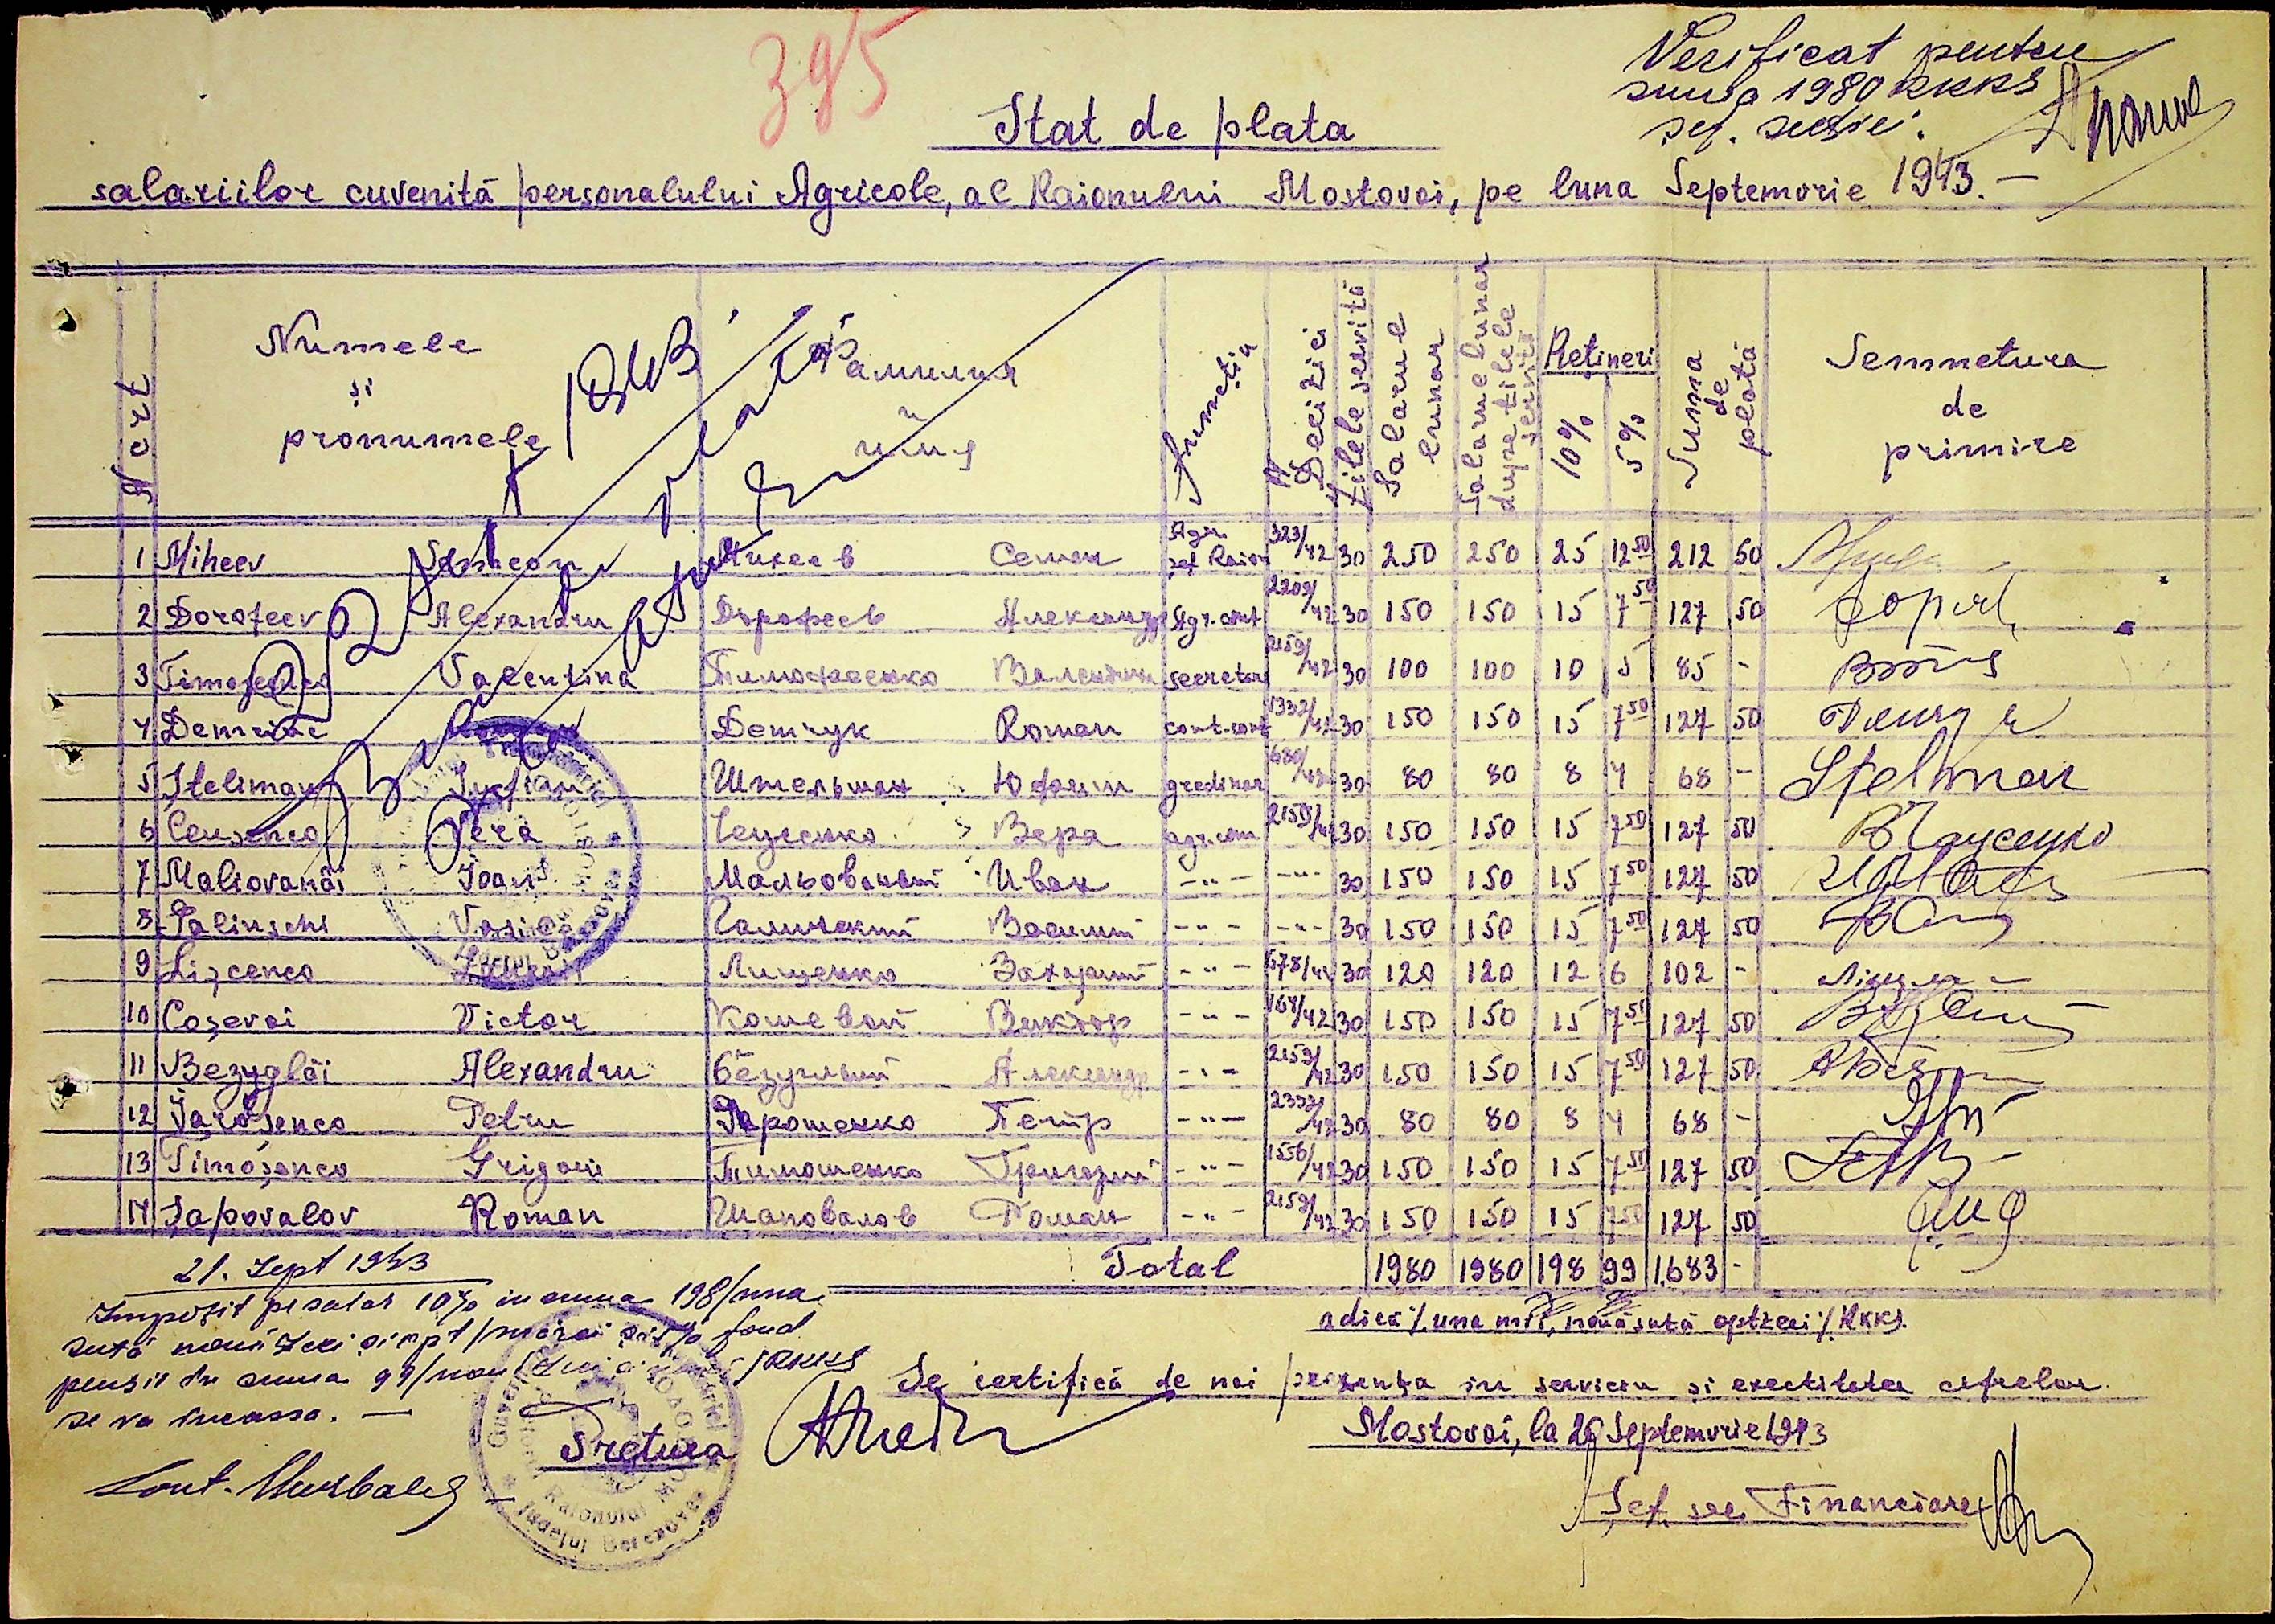 395
Verificat pentru
suma 1980 RKKS
șef. secției.
Stat de plata
salariilor cuvenită personalului Agricole, al Raionului Mostovoi, pe luna Septemvrie 1943. —
№ crt
Numele și pronumele
Фамилия имя
Funcția
№ Deciziei
Zilele servită
Salarul lunar
Salarul lunar dupe zilele servite
Rețineri
10% 5%
Suma de plată
Semnetura de primire
1 Miheev Simeon Михеев Семен Agr. șef Raion 323/42 30 250 250 25 12 50 212 50
2 Dorofeev Alexandru Дорофеев Александр Agr. cont 2209/42 30 150 150 15 7 50 127 50
3 Timofeenco Valentina Тимофеенко Валентина secretar 2159/42 30 100 100 10 5 85 -
4 Demciuc Демчук Roman cont. cont 1337/42 30 150 150 15 7 50 127 50
5 Șteliman Iufim Штельман Юфим gredinar 680/42 30 80 80 8 4 68 - Stelman
6 Ceusenco Vera Чеусенко Вера agr. con 2159/42 30 150 150 15 7 50 127 50 В Чаусенко
7 Maliovanâi Ioan Мальованый Иван -"- -"- 30 150 150 15 7 50 127 50
8 Galinschi Vasile Галинский Василий -"- -"- 30 150 150 15 7 50 127 50
9 Lișcenco Лищенко Захарий -"- 678/42 30 120 120 12 6 102 -
10 Coșevoi Victor Кошевой Виктор -"- 164/42 30 150 150 15 7 50 127 50
11 Bezuglâi Alexandru Безуглый Александр -"- 2159/42 30 150 150 15 7 50 127 50
12 Iaroșenco Petru Ярошенко Петр -"- 2337/42 30 80 80 8 4 68 -
13 Timoșenco Grigorii Тимошенко Григорий -"- 1556/42 30 150 150 15 7 50 127 50
14 Șapovalov Roman Шаповалов Роман -"- 2159/42 30 150 150 15 7 50 127 50
Total 1980 1980 198 99 1,683 -
adică /. una mii, nouă sută optzeci /. RKKS.
21. Sept 1943
Impozit pe salar 10% in suma 198/una
sută nouă zeci și opt/ 5% fond
pensie în suma 99/nouă RKKS
se va încassa. —
Se certifică de noi prezența in serviciu și exectitatea cifrelor.
Mostovoi, la 20 Septemvrie 1943
Pretura
Șef sec. Financiare
Raionului
Judeţul Berezovca